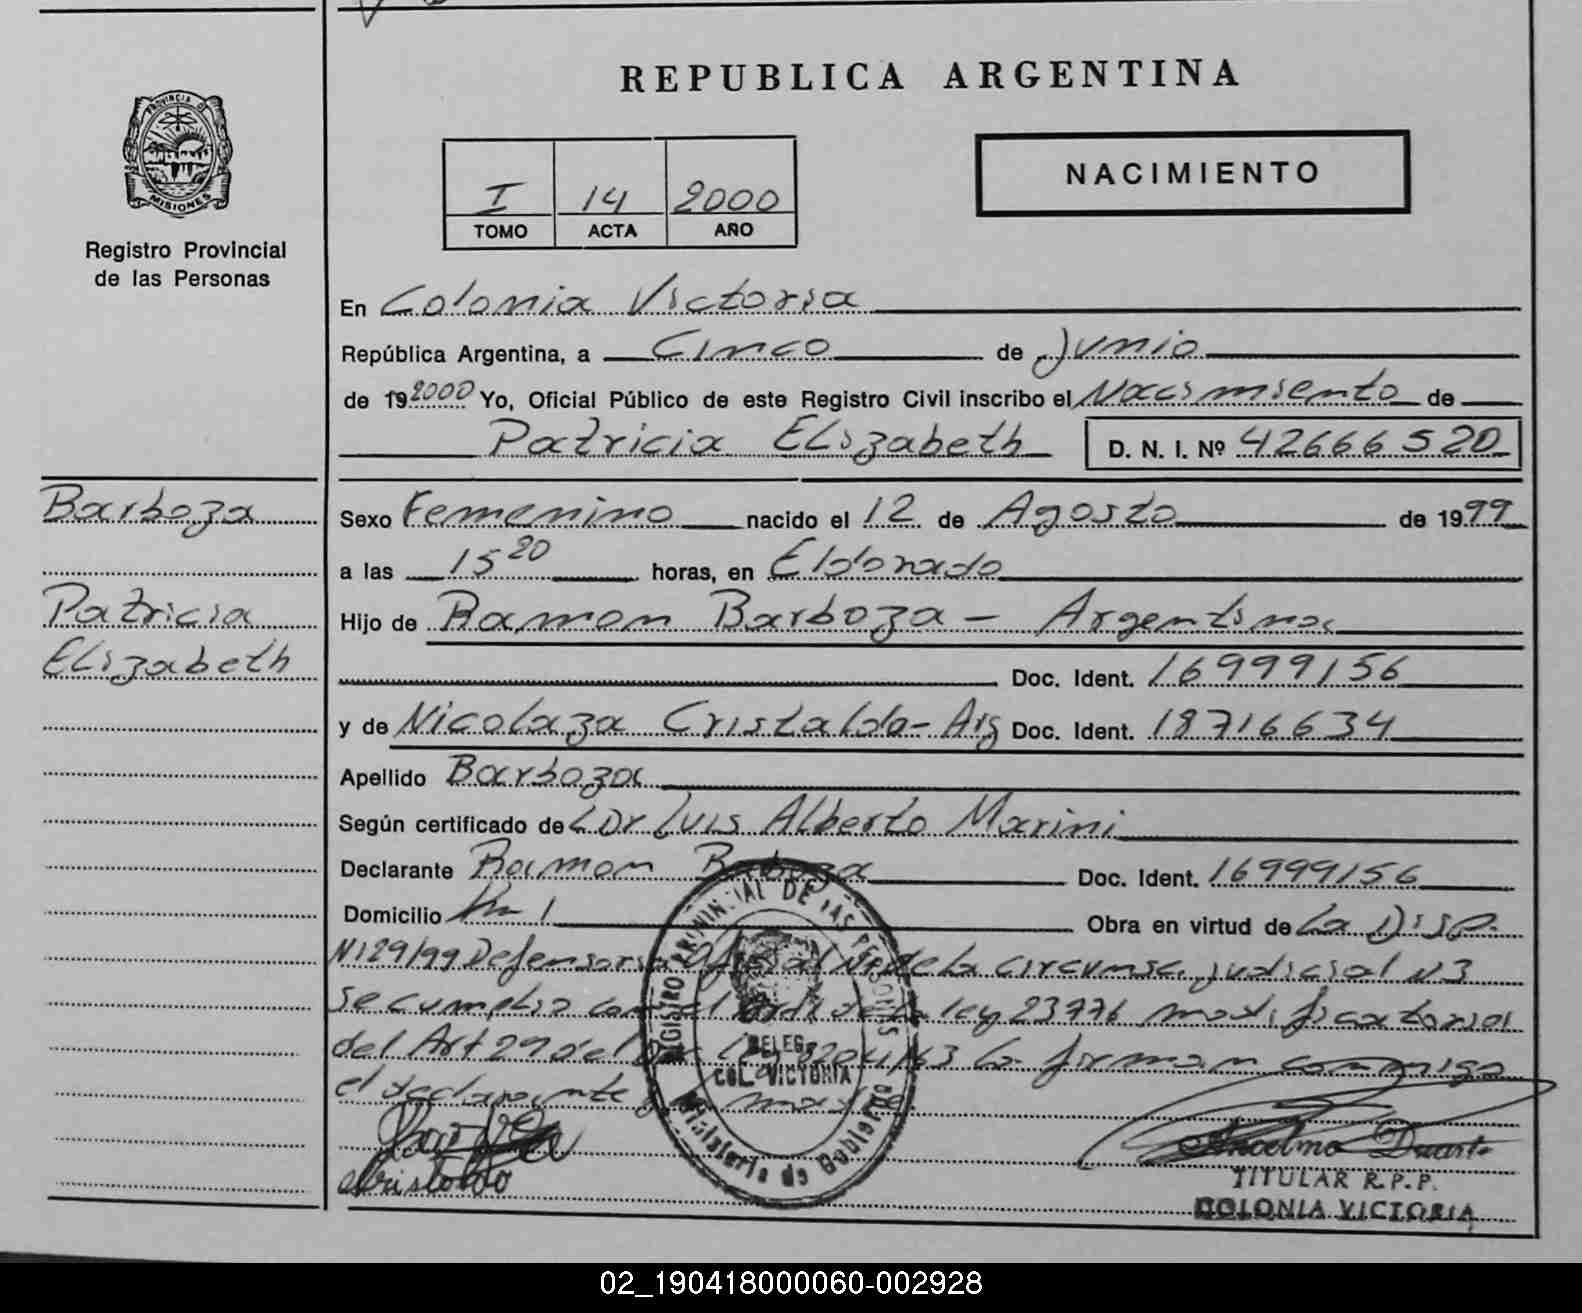 REPUBLICA ARGENTINA
PROVINCIA D
MISIONES
Registro Provincial
de las Personas
I 14 2000
TOMO ACTA AÑO
NACIMIENTO
En Colonia Victoria
República Argentina, a Cinco de Junio
de 19 2000 Yo, Oficial Público de este Registro Civil inscribo el Nacimiento de
Patricia Elizabeth D. N. I. Nº 42666520
Barboza
Patricia
Elizabeth
Sexo Femenino nacido el 12 de Agosto de 1999
a las 15 20 horas, en Eldorado
Hijo de Ramon Barboza - Argentina
Doc. Ident. 16999156
y de Nicolaza Cristaldo - Arg Doc. Ident. 18716634
Apellido Barboza
Según certificado de Dr Luis Alberto Marini
Declarante Ramon Barboza Doc. Ident. 16999156
Domicilio Km 1 Obra en virtud de La Disp.
N129/99 Defensoria Oficial de la circunsc. judicial N3
se cumplio con el de la ley 23776 modificatoria
del Art 29 del 8204/63 La firman conmigo
el declarante y
REGISTRO PROVINCIAL DE LAS PERSONAS
DELEG.
COL. VICTORIA
Ministerio de Gobierno
Cristaldo
Anselmo Duarte
TITULAR R.P.P.
COLONIA VICTORIA
02_190418000060-002928